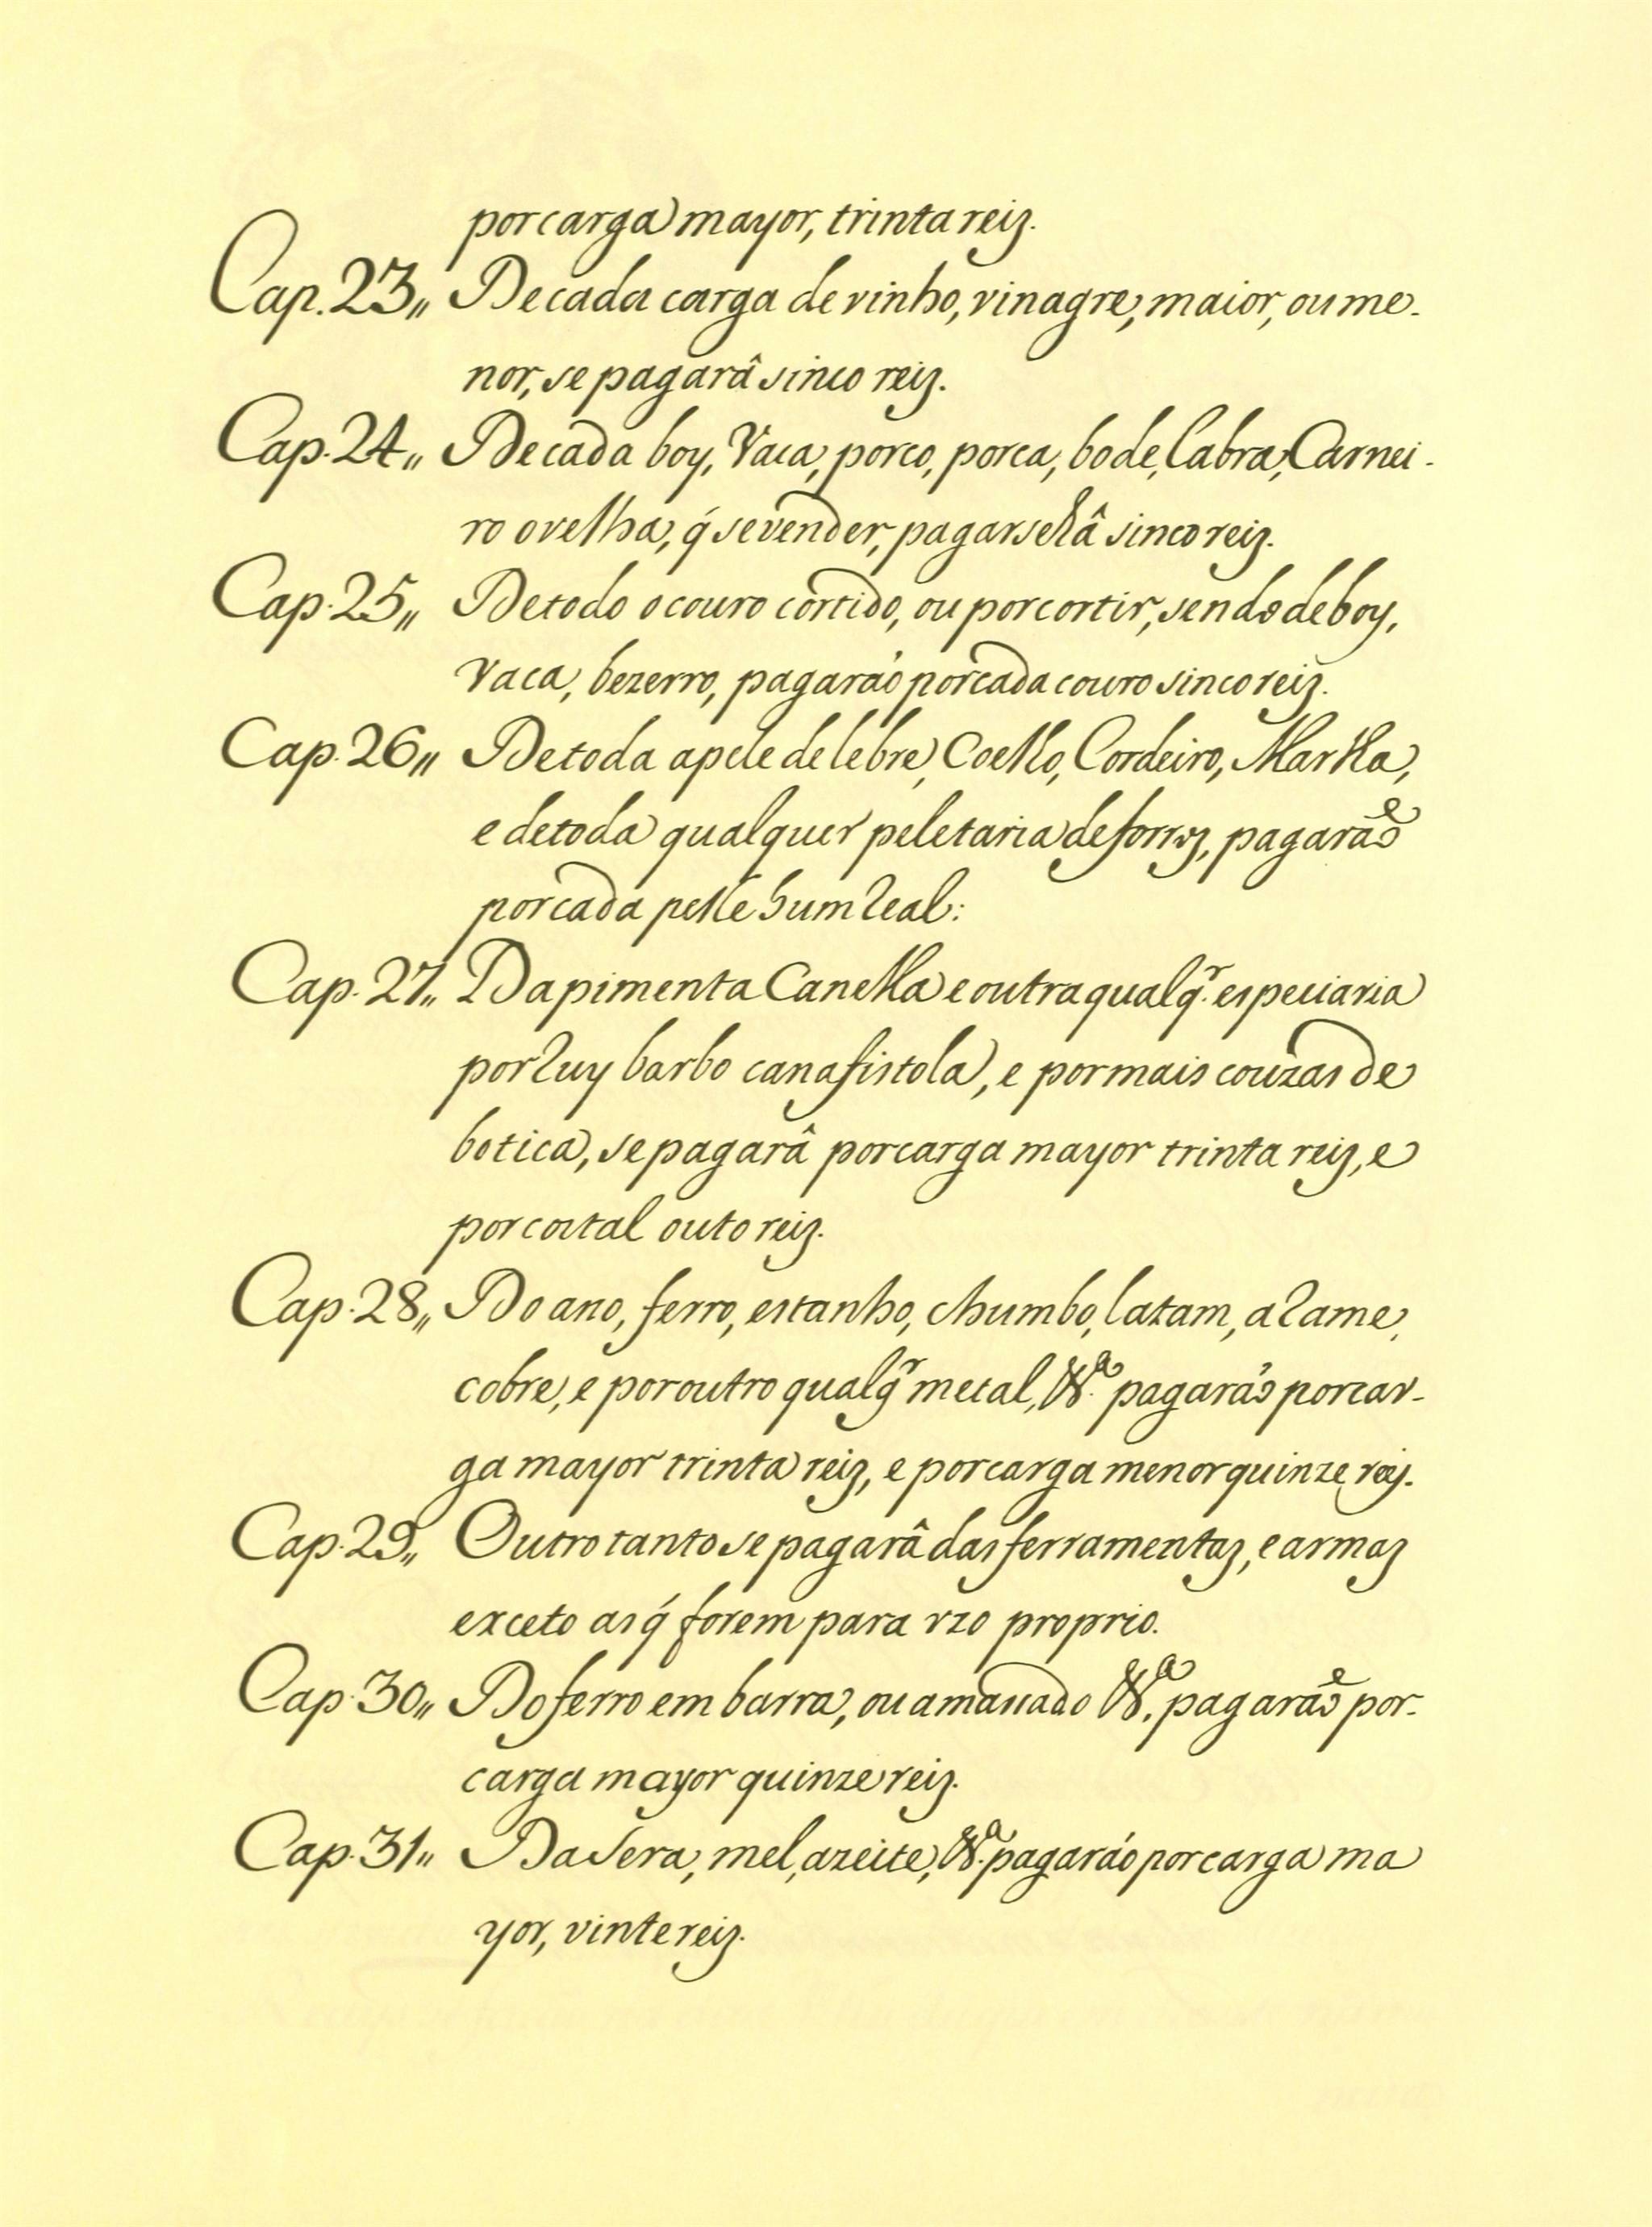 por carga mayor, trinta reis.
Cap. 23,, De cada carga de vinho, vinagre, maior, ou me-
nor, se pagarâ sinco reis.
Cap. 24,, De cada boy, Vaca, porco, porca, bode, Cabra, Carnei-
ro ovelha, q́ se vender, pagarselâ sinco reis.
Cap. 25,, De todo o couro cortido, ou por cortir, sendo de boy,
Vaca, bezerro, pagaráõ por cada couro sinco reis.
Cap. 26,, De toda a pele de lebre, Coelho, Cordeiro, Martta,
e de toda qualquer peletaria de forros, pagarãõ
por cada pelle hum Real:
Cap. 27,, Da pimenta Canella e outra qualq.r especiaria
por Ruy barbo canafistola, e por mais couzas de
botica, se pagarâ por carga mayor trinta reis, e
por costal outo reis.
Cap. 28,, Do aso, ferro, estanho, chumbo, latam, arame,
cobre, e por outro qualq.r metal, &.a pagaráõ por car-
ga mayor trinta reis, e por carga menor quinze reis.
Cap. 29,, Outro tanto se pagarâ das ferramentas, e armas
exceto as q́ forem para vzo proprio.
Cap. 30,, Do ferro em barra, ou amasado &.a pagarãõ por-
carga mayor quinze reis.
Cap. 31,, Da sera, mel, azeite, &.a pagaráõ por carga ma
yor, vinte reis.